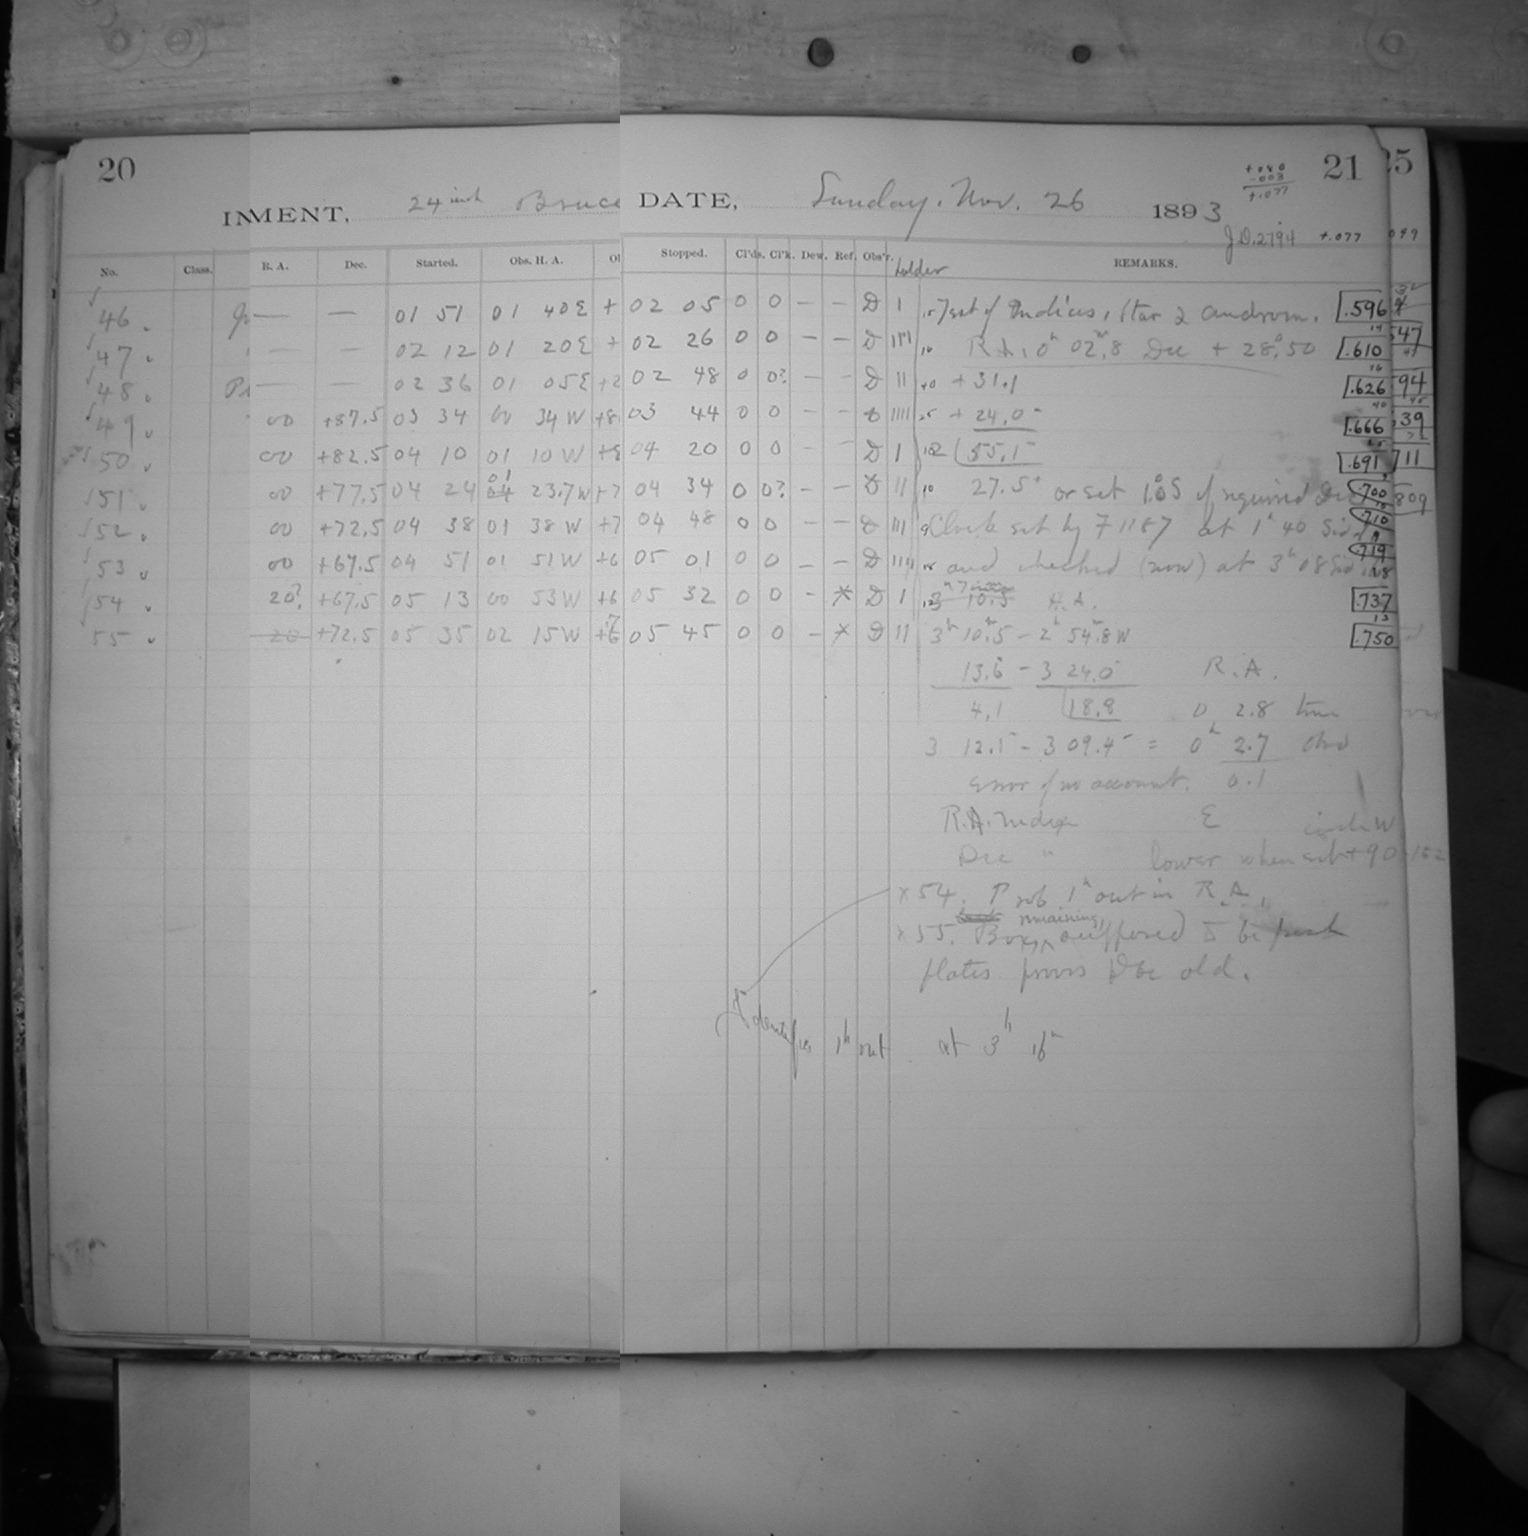 20
21
25
+.080
-.003
+.077
INMENT, 24 inch Bruce DATE, Sunday. Nov. 26 1893
J.D. 2794 +.077
No. Class. R. A. Dec. Started. Obs. H. A. Stopped. Cl'ds. Cl'k. Dew. Ref. Obs'r. holder REMARKS.
46. — — 01 51 01 40E + 02 05 0 0 — — D 1 Test of Indices, Star 2 Androm. .596
47. — — 02 12 01 20E + 02 26 0 0 — — D 111 R.A. 0h 02m.8 Dec + 28°.50 .610
48. — — 02 36 01 05E +2 02 48 0 0? — — D 11 +31.1 .626
49. 00 +87.5 03 34 00 34W +8 03 44 0 0 — — D 1111 + 24.0 .666
50. 00 +82.5 04 10 01 10W 04 20 0 0 — — D 1 55.1 .691
51. 00 +77.5 04 24 01 23.7W +7 04 34 0 0? — — D 11 27.5 or set 1.05 if required .700
52. 00 +72.5 04 38 01 38W +7 04 48 0 0 — — D 111 Clock set by F1187 at 1h 40 Sid. .710
53. 00 +67.5 04 51 01 51W +6 05 01 0 0 — — D 1111 and checked (now) at 3h 08 Sid .719
54. 20? +67.5 05 13 00 53W +6 05 32 0 0 - * D 1 3 10.5 R.A. .737
55. 20 +72.5 05 35 02 15W 05 45 0 0 — * D 11 3h 10m.5 - 2h 54m.8 W .750
13.6 - 3 24.0 R.A.
4.1 18.8 0 2.8 true
3 12.1 - 3 09.4 = 0h 2.7 obsd
Error of no account. 0.1
R.A. Index E W
Dec " lower when set +90
*54. Prob 1h out in R.A.
*55. Box, remaining, supposed to be fresh
plates proves to be old.
Identifies 1h out at 3h 16m